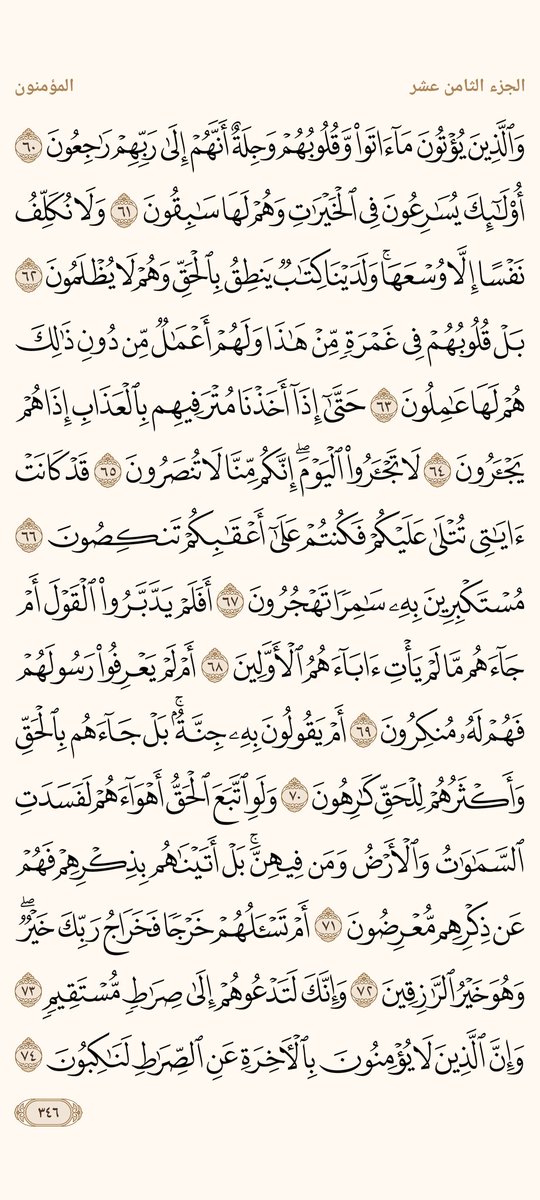 الجزء الثامن عشر
المؤمنون
وَٱلَّذِينَ يُؤۡتُونَ مَآ ءَاتَواْ وَّقُلُوبُهُمۡ وَجِلَةٌ أَنَّهُمۡ إِلَىٰ رَبِّهِمۡ رَٰجِعُونَ ٦٠
أُوْلَٰٓئِكَ يُسَٰرِعُونَ فِي ٱلۡخَيۡرَٰتِ وَهُمۡ لَهَا سَٰبِقُونَ ٦١ وَلَا نُكَلِّفُ
نَفۡسًا إِلَّا وُسۡعَهَاۚ وَلَدَيۡنَا كِتَٰبٞ يَنطِقُ بِٱلۡحَقِّ وَهُمۡ لَا يُظۡلَمُونَ ٦٢
بَلۡ قُلُوبُهُمۡ فِي غَمۡرَةٖ مِّنۡ هَٰذَا وَلَهُمۡ أَعۡمَٰلٞ مِّن دُونِ ذَٰلِكَ
هُمۡ لَهَا عَٰمِلُونَ ٦٣ حَتَّىٰٓ إِذَآ أَخَذۡنَا مُتۡرَفِيهِم بِٱلۡعَذَابِ إِذَا هُمۡ
يَجۡـَٔرُونَ ٦٤ لَا تَجۡـَٔرُواْ ٱلۡيَوۡمَۖ إِنَّكُم مِّنَّا لَا تُنصَرُونَ ٦٥ قَدۡ كَانَتۡ
ءَايَٰتِي تُتۡلَىٰ عَلَيۡكُمۡ فَكُنتُمۡ عَلَىٰٓ أَعۡقَٰبِكُمۡ تَنكِصُونَ ٦٦
مُسۡتَكۡبِرِينَ بِهِۦ سَٰمِرٗا تَهۡجُرُونَ ٦٧ أَفَلَمۡ يَدَّبَّرُواْ ٱلۡقَوۡلَ أَمۡ
جَآءَهُم مَّا لَمۡ يَأۡتِ ءَابَآءَهُمُ ٱلۡأَوَّلِينَ ٦٨ أَمۡ لَمۡ يَعۡرِفُواْ رَسُولَهُمۡ
فَهُمۡ لَهُۥ مُنكِرُونَ ٦٩ أَمۡ يَقُولُونَ بِهِۦ جِنَّةُۢۚ بَلۡ جَآءَهُم بِٱلۡحَقِّ
وَأَكۡثَرُهُمۡ لِلۡحَقِّ كَٰرِهُونَ ٧٠ وَلَوِ ٱتَّبَعَ ٱلۡحَقُّ أَهۡوَآءَهُمۡ لَفَسَدَتِ
ٱلسَّمَٰوَٰتُ وَٱلۡأَرۡضُ وَمَن فِيهِنَّۚ بَلۡ أَتَيۡنَٰهُم بِذِكۡرِهِمۡ فَهُمۡ
عَن ذِكۡرِهِم مُّعۡرِضُونَ ٧١ أَمۡ تَسۡـَٔلُهُمۡ خَرۡجٗا فَخَرَاجُ رَبِّكَ خَيۡرٞۖ
وَهُوَ خَيۡرُ ٱلرَّٰزِقِينَ ٧٢ وَإِنَّكَ لَتَدۡعُوهُمۡ إِلَىٰ صِرَٰطٖ مُّسۡتَقِيمٖ ٧٣
وَإِنَّ ٱلَّذِينَ لَا يُؤۡمِنُونَ بِٱلۡأٓخِرَةِ عَنِ ٱلصِّرَٰطِ لَنَٰكِبُونَ ٧٤
٣٤٦